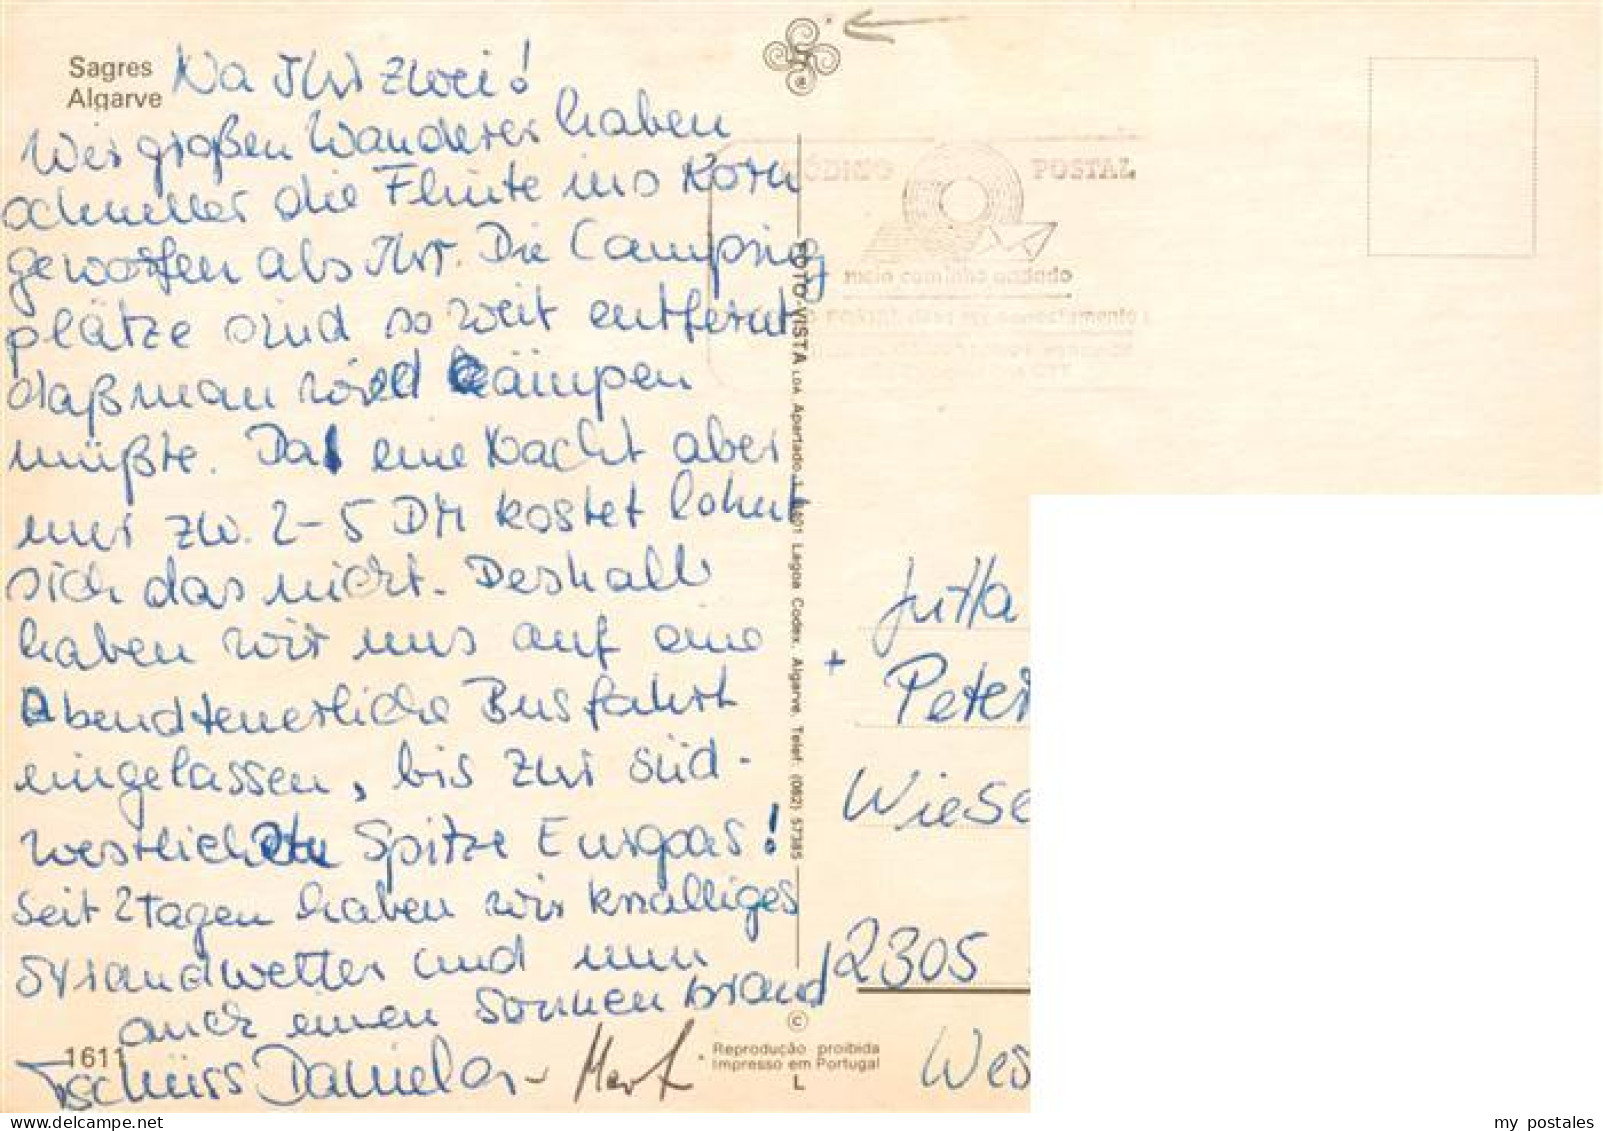 Sagres
Algarve
Na Ihr zwei!
Wir großen Wanderer haben
schneller die Flinte ins Korn
geworfen als Ihr. Die Camping
plätze sind so weit entfernt
daß man wild cämpen
müßte. Da eine Nacht aber
nur zw. 2-5 DM kostet lohnt
sich das nicht. Deshalb
haben wir uns auf eine
Abendteuerliche Busfahrt
eingelassen, bis zur süd-
westlichsten Spitze Europas!
Seit 2 Tagen haben wir knalliges
Strandwetter und nun
auch einen Sonnenbrand
Tschüss Daniela -
1611
CÓDIGO POSTAL
meio caminho andado
FOTO-VISTA LDA Apartado 1 Lagoa Codex. Algarve. Telef. (082) 57385
©
Reprodução proibida
Impresso em Portugal
L
Jutta
+ Peter
Wiese
2305
Wes
my postales